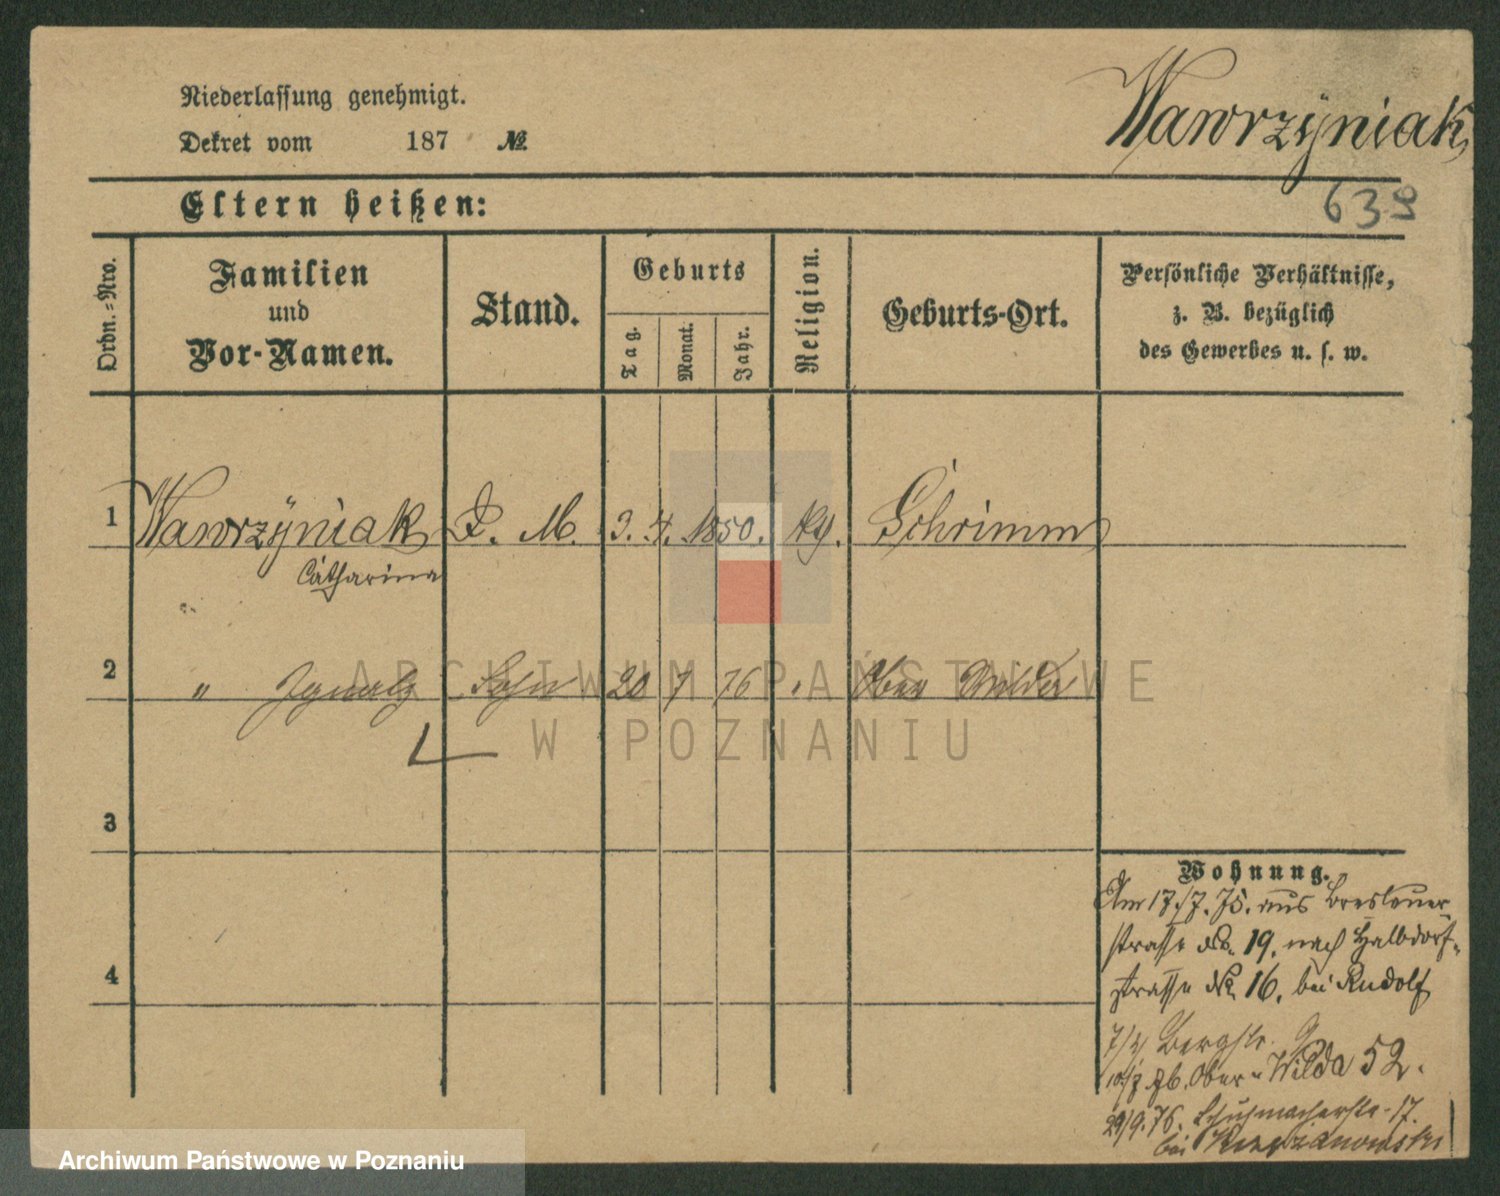 Niederlassung genehmigt.
Dekret vom 187 №
Wawrzÿniak
639
Eltern heißen:
Ordn.-Nro.
Familien
und
Vor-Namen.
Stand.
Geburts
Tag.
Monat.
Jahr.
Religion.
Geburts-Ort.
Persönliche Verhältnisse,
z. B. bezüglich
des Gewerbes u. s. w.
1 Wawrzÿniak D. M. 3. 4. 1850. kg. Schrimm
Catharina
2 " Ignatz Sohn 20 7 76 " Ober Wilda
3
4
Wohnung.
Am 17./7. 75. aus Breslauer-
strasse No. 19. nach Halbdorf-
strasse No 16. bei Rudolf
7/4 Bergstr. 9
10/7 Ober-Wilda 52.
29/9. 76. Schuhmacherstr. 17.
bei
ARCHIWUM PAŃSTWOWE
W POZNANIU
Archiwum Państwowe w Poznaniu